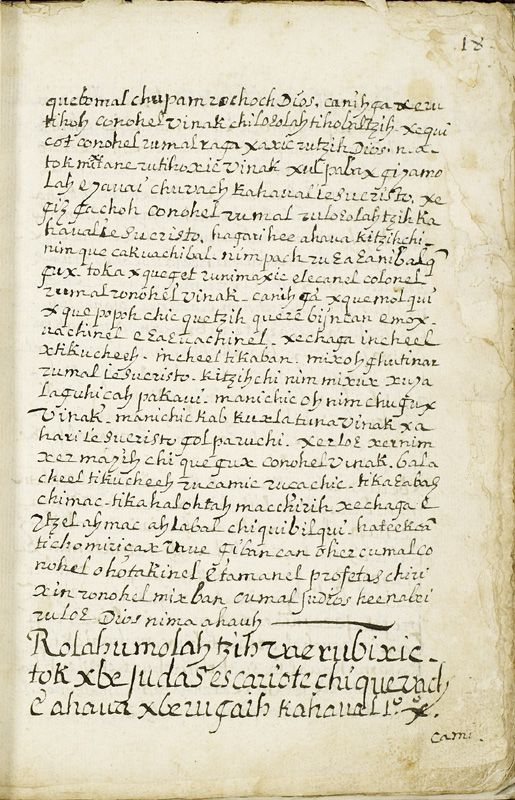 18
quebomal chupam rochoch Dios. canihga xeru
tihoh conohel vinak chiloEolah tihobaltzih. xequi
cot conohel rumal raga xaxic rutzih Dios. n.a.
tok mꝉtane rutihoxic vinak xul palax giyamo
lah eyauai chuvach kahaual iesucristo. xe
giz gachoh conohel rumal ruloEolah tzih ka
haual iesucristo. hagari hee ahaua kitzihchi.
nim que cakuachibal. nim pach ru
gux. toka xqueget runimaxic elecanel colonel
rumal ronohel vinak. canih ga xquemol qui
xque popoh chic quetzih quere bijncan emox.
uachinel eEaEuachinel. xechaga incheel
xtikucheeh. incheel tikaban. mixoh ghutinar
rumal iesucristo. kitzihchi nim mixux xuya
laguhicah pakaui. manichic oh nim chugux
vinak. manichic kab kuxlatuna vinak xa
hari iesucristo gol paruchi. xerloE xernim
xer mayih chi que gux conohel vinak. bala
cheel tikucheeh rucamic rucachic. tikaEabag
chimac. tikahalohtah macchirih xechaga e
ytzel ahmac ahlabal chiquibilqui. hateeksa
tichomiricax vave giban can oher cumal co
nohel ohotakinel etamanel profetas chiri
xin ronohel mixban cumal judios heenabei
ruloE Dios nima ahauh
Rolahumolah tzih vae rubixic.
tok xbe Judas escariote chi quevach
e ahaua xberugaih kahaual 1o x.
cami.